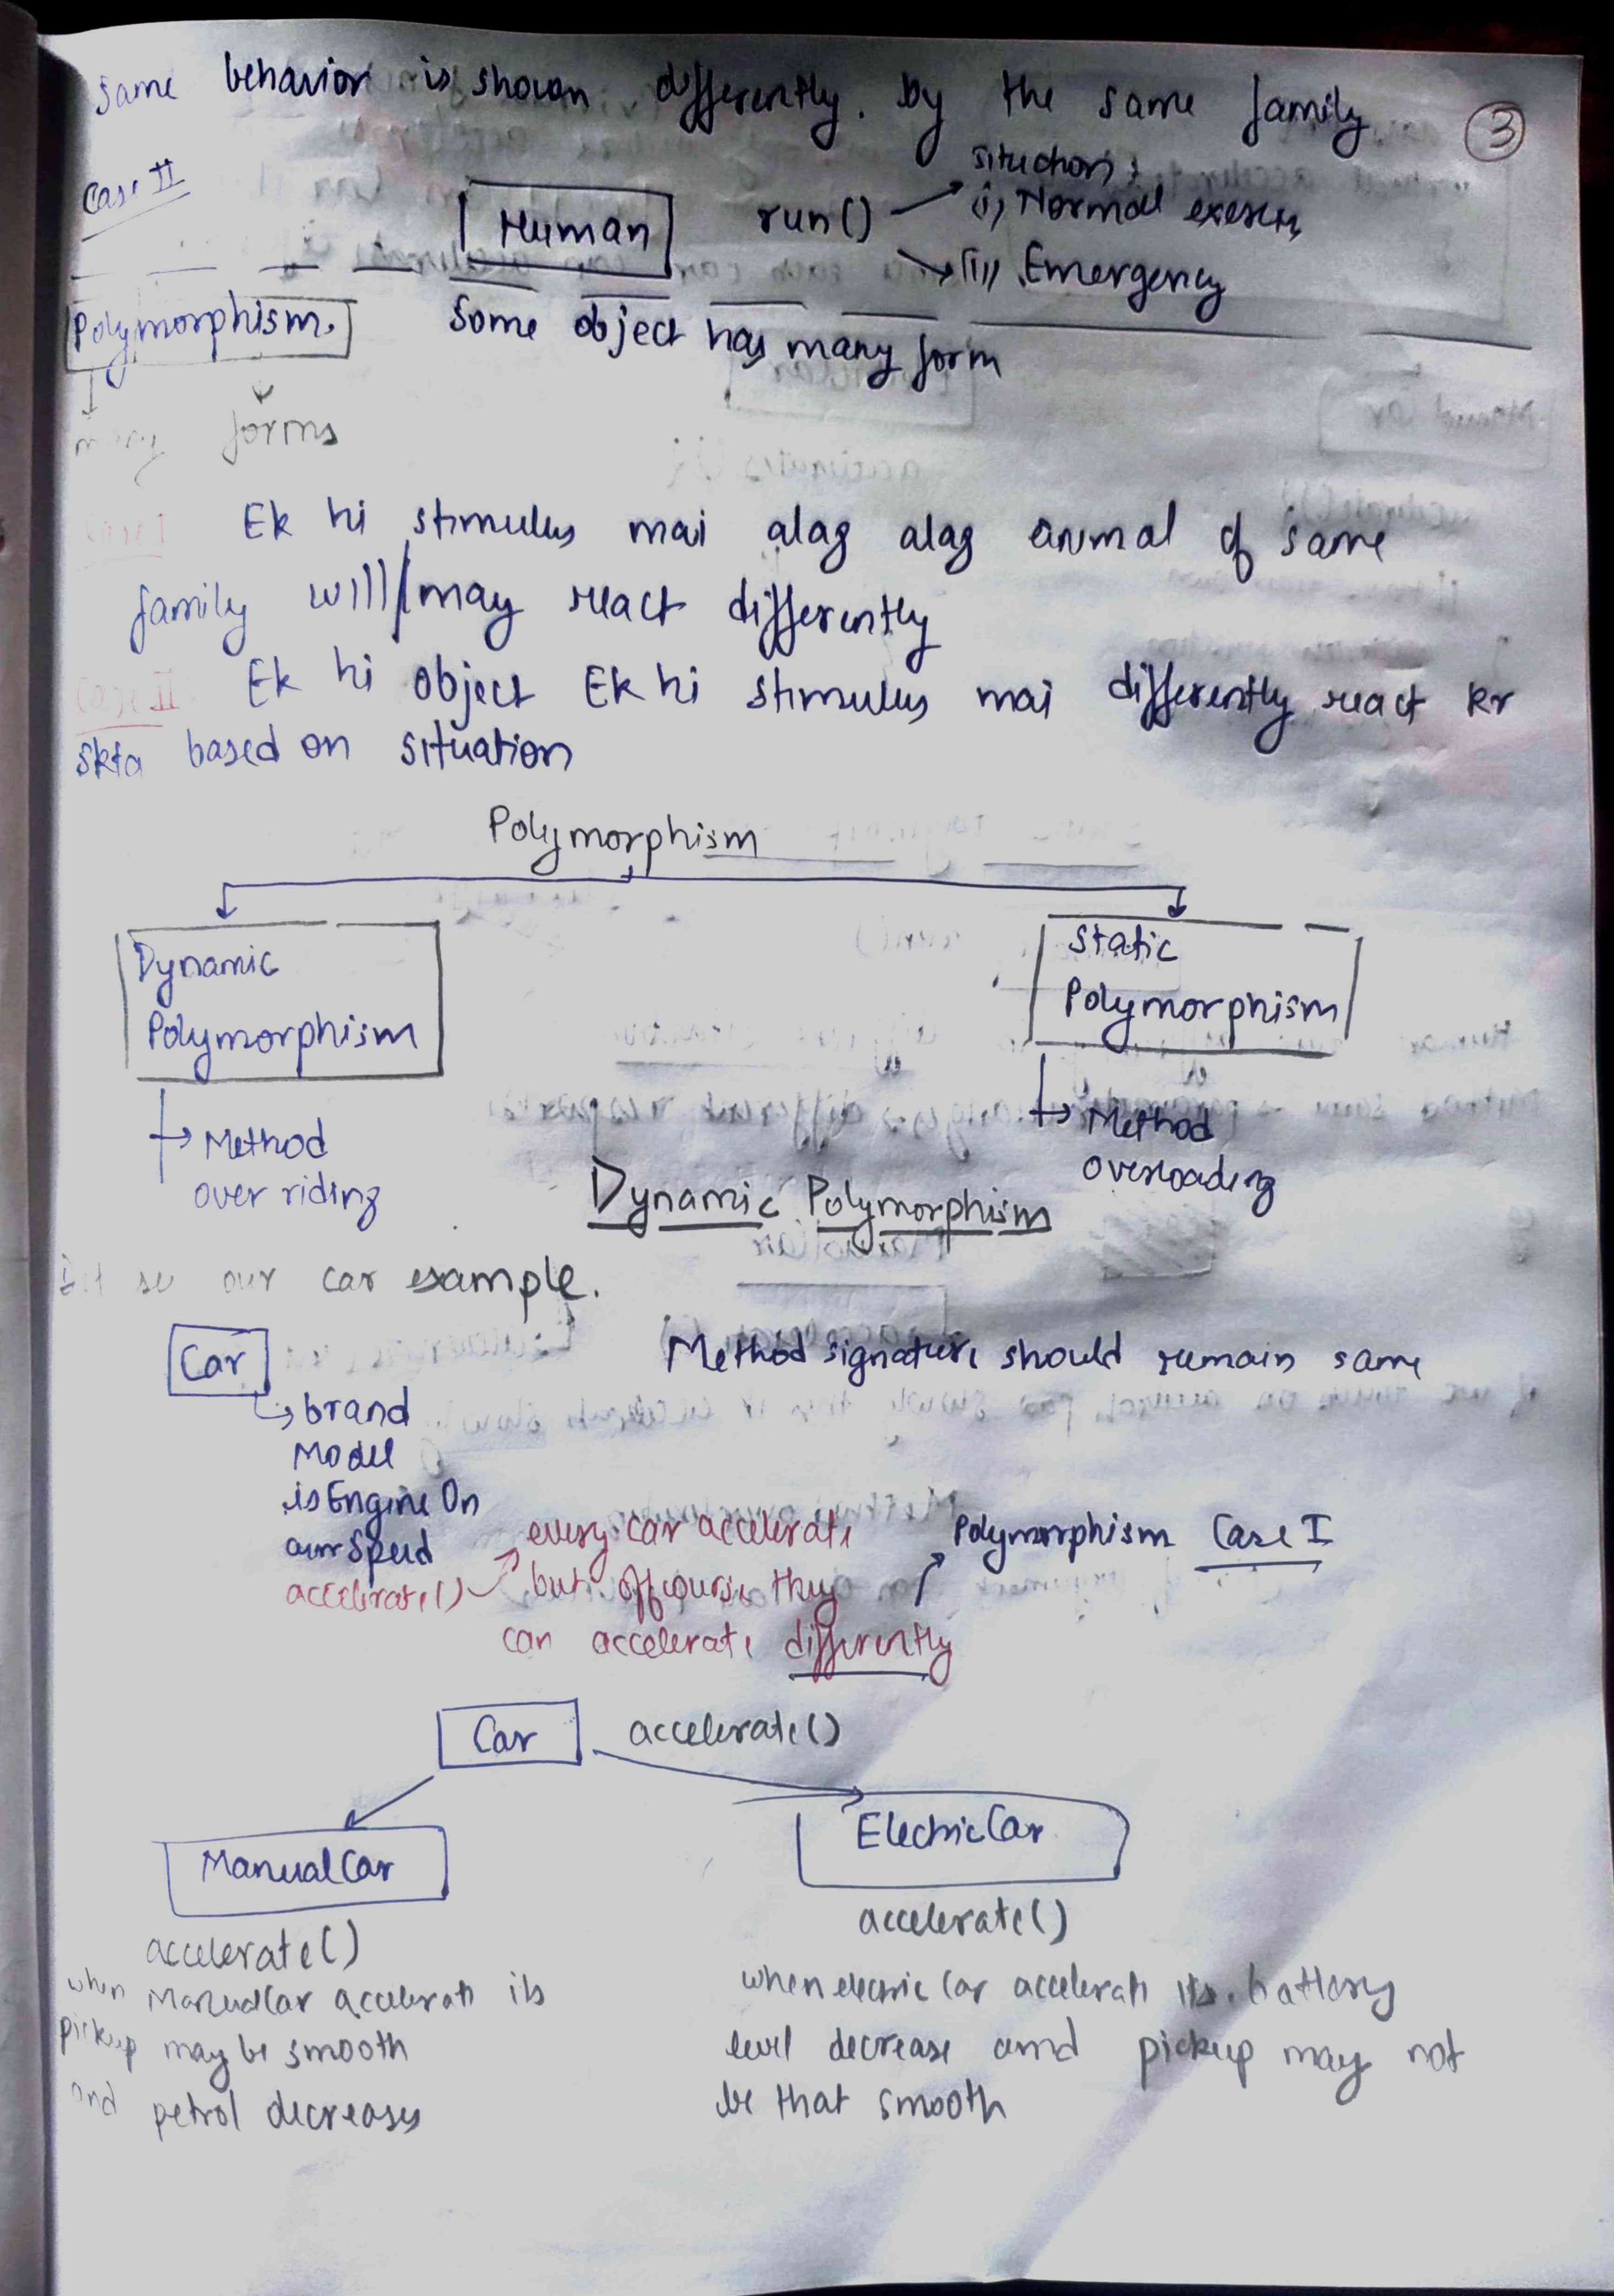 same behavior is shown differently. by the same family
3
Case II
Human
run()
situction:
(i) Normal
(ii) Emergency
Polymorphism.
Some object has many form
many forms
Case I Ek hi stimulus mai alag alag animal of same
family will/may react differently
Case II Ek hi object Ek hi stimulus mai differently react kr
skta based on situation
Polymorphism
Dynamic
Polymorphism
Static
Polymorphism
Method
over riding
Method
overloading
Dynamic Polymorphism
our car example.
Car
Method signature should remain same
brand
Model
isEngineOn
currSpeed
accelerate()
every car accelerate
but offcourse they
can accelerate differently
Polymorphism Case I
Car
accelerate()
ManualCar
ElectricCar
accelerate()
when ManualCar accelerate its
pickup may be smooth
and petrol decreases
accelerate()
when electric Car accelerate its battery
level decrease and pickup may not
be that smooth